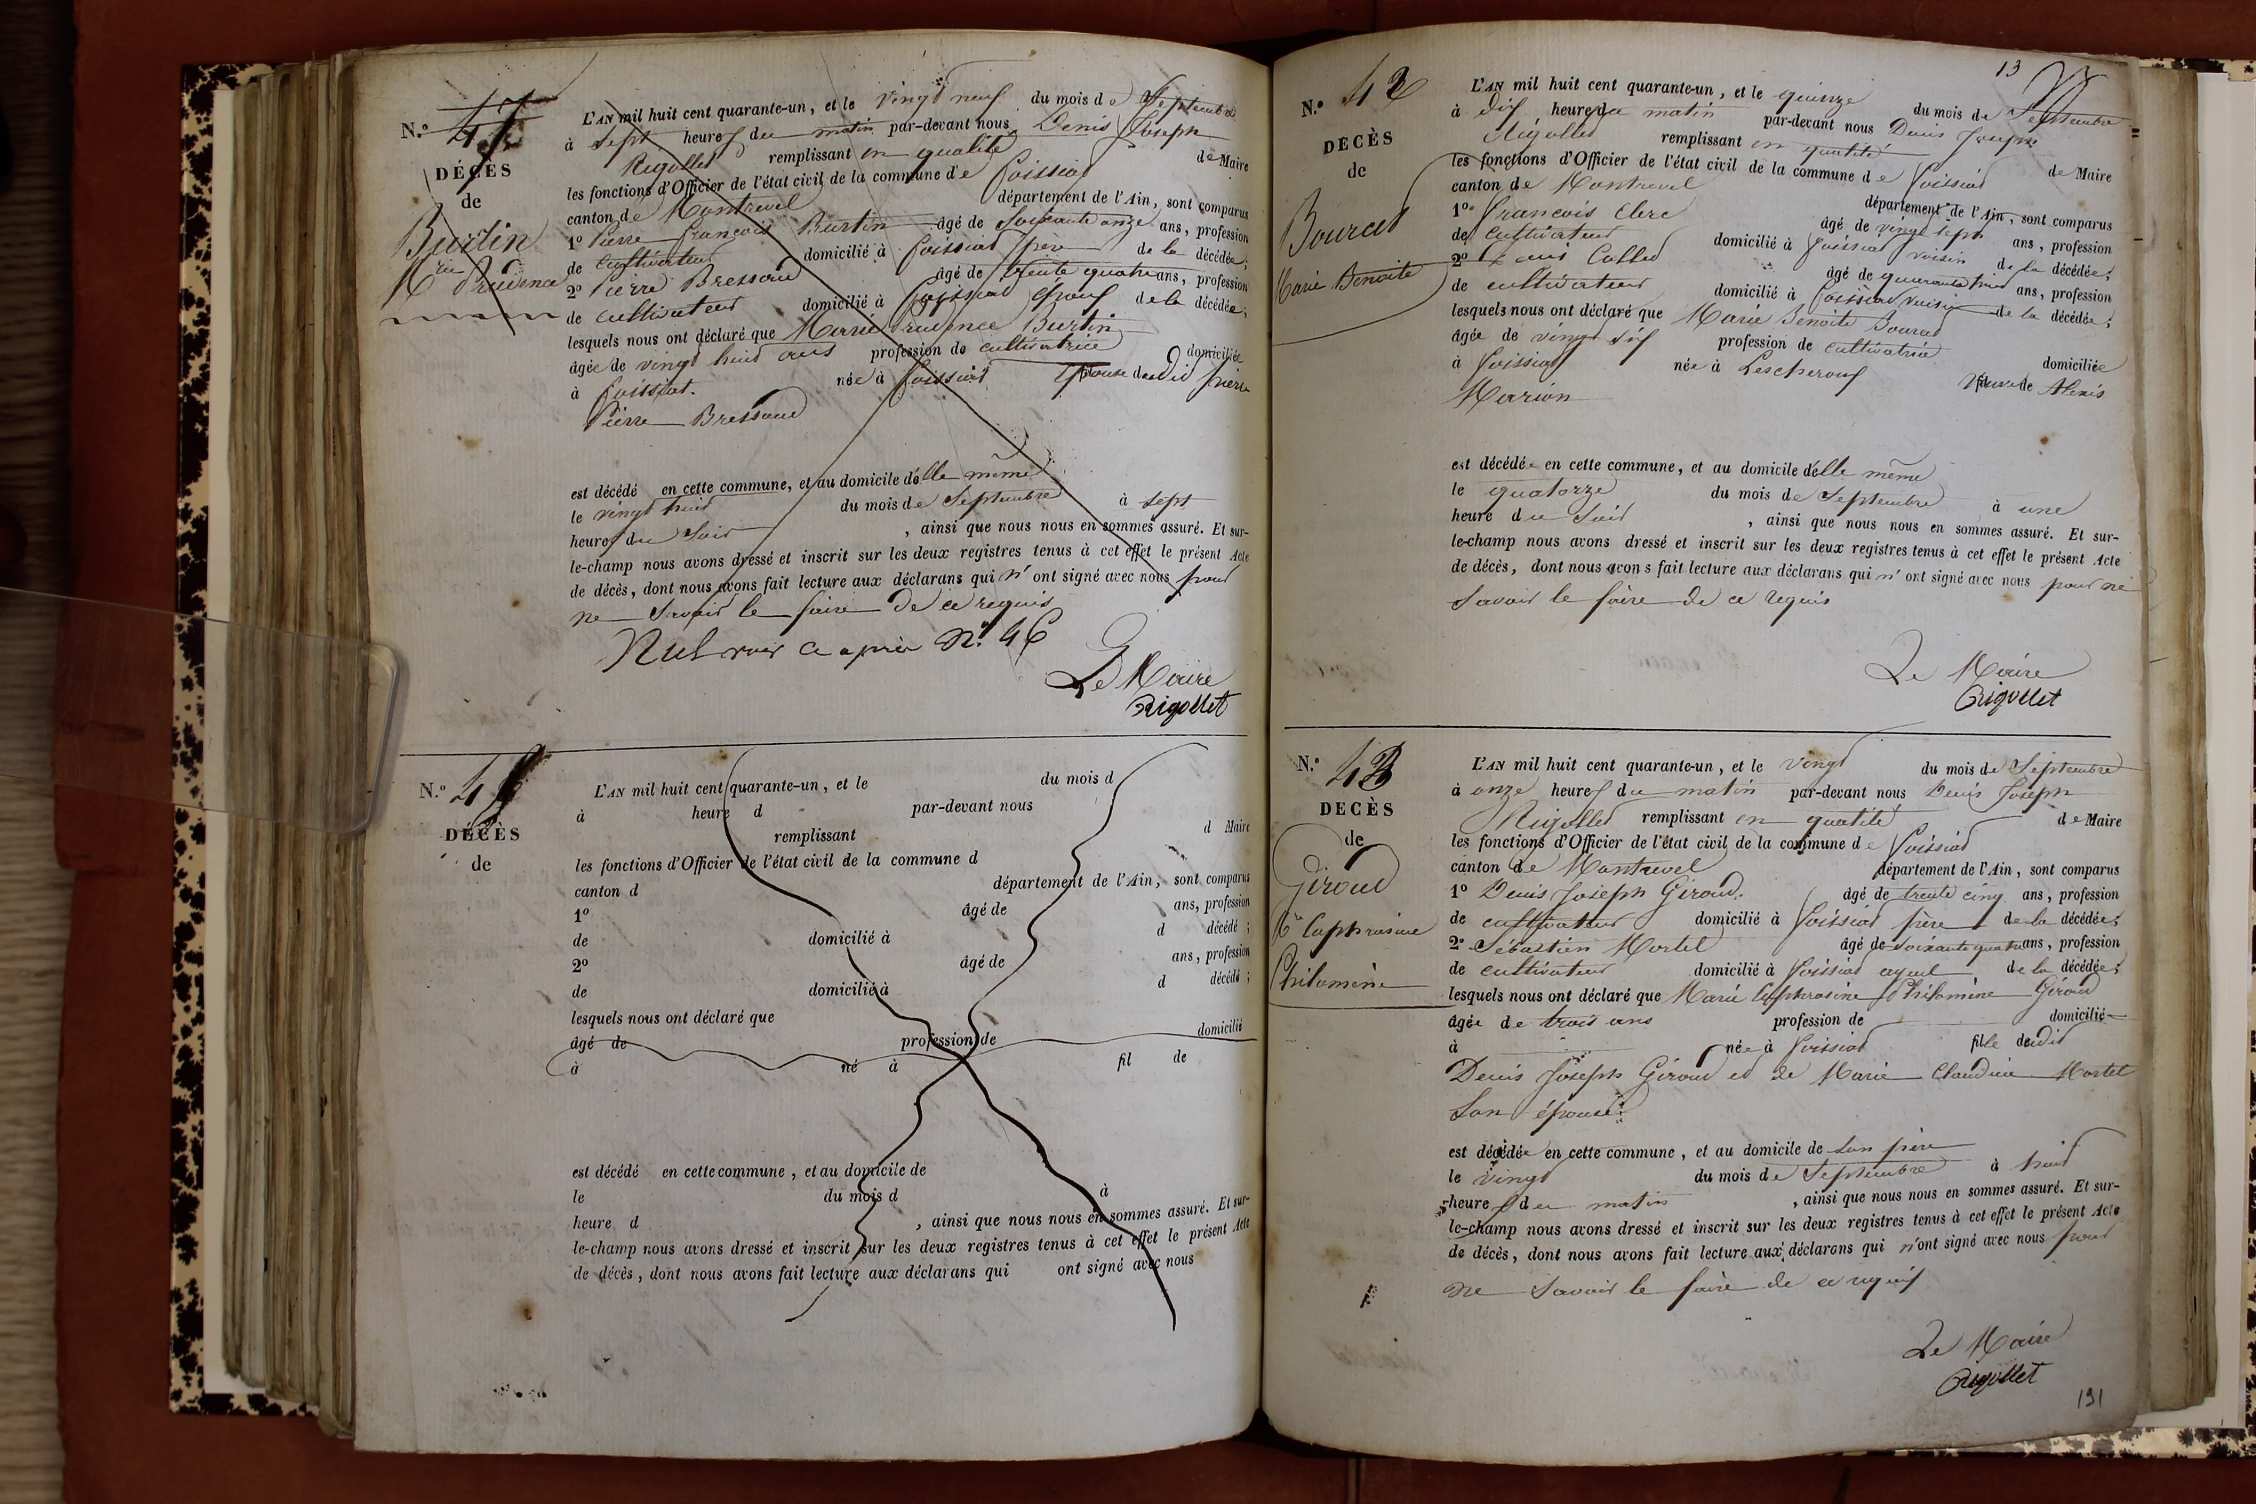 N.º
DÉCÈS
de
Burtin
Mie Prudence
L'AN mil huit cent quarante-un, et le vingt neuf du mois de Septembre
à sept heures du matin par-devant nous Denis Joseph
Rigollet remplissant en qualité de Maire
les fonctions d'Officier de l'état civil de la commune de Foissiat
canton de Montrevel département de l'Ain, sont comparus
1º Pierre François Burtin âgé de Soixante onze ans, profession
de cultivateur domicilié à Foissiat père de la décédée;
2º Pierre Bressoud âgé de trente quatre ans, profession
de cultivateur domicilié à Foissiat époux de la décédée;
lesquels nous ont déclaré que Marie Prudence Burtin
âgée de vingt huit ans profession de cultivatrice domiciliée
à Foissiat. née à Foissiat Epouse dudit Pierre
Pierre Bressoud
est décédé en cette commune, et au domicile d'elle même
le vingt huit du mois de Septembre à sept
heures du Soir, ainsi que nous nous en sommes assuré. Et sur-
le-champ nous avons dressé et inscrit sur les deux registres tenus à cet effet le présent Acte
de décès, dont nous avons fait lecture aux déclarans qui n'ont signé avec nous pour
ne Savoir le faire de ce requis
Nul voir ci après N.º 46
Le Maire
Rigollet
N.º
DÉCÈS
de
L'AN mil huit cent quarante-un, et le du mois d
à heure d par-devant nous
remplissant d Maire
les fonctions d'Officier de l'état civil de la commune d
canton d département de l'Ain, sont comparus
1º âgé de ans, profession
de domicilié à d décédé;
2º âgé de ans, profession
de domicilié à d décédé;
lesquels nous ont déclaré que
âgé de profession de domicilié
à né à fil de
est décédé en cette commune, et au domicile de
le du mois d à
heure d, ainsi que nous nous en sommes assuré. Et sur-
le-champ nous avons dressé et inscrit sur les deux registres tenus à cet effet le présent Acte
de décès, dont nous avons fait lecture aux déclarans qui ont signé avec nous
13
N.º 42
DÉCÈS
de
Bourcet
Marie Benoite
L'AN mil huit cent quarante-un, et le quinze du mois de Septembre
à dix heures du matin par-devant nous Denis Joseph
Rigollet remplissant en qualité de Maire
les fonctions d'Officier de l'état civil de la commune de Foissiat
canton de Montrevel département de l'Ain, sont comparus
1º François Clerc âgé de vingt sept ans, profession
de cultivateur domicilié à Foissiat voisin de la décédée;
2º Louis Collet âgé de quarante trois ans, profession
de cultivateur domicilié à Foissiat voisin de la décédée;
lesquels nous ont déclaré que Marie Benoite Bourcet
âgée de vingt dix profession de cultivatrice domiciliée
à Foissiat née à Lescheroux Veuve de Alexis
Marion
est décédée en cette commune, et au domicile d'elle même
le quatorze du mois de Septembre à une
heure du Soir, ainsi que nous nous en sommes assuré. Et sur-
le-champ nous avons dressé et inscrit sur les deux registres tenus à cet effet le présent Acte
de décès, dont nous avons fait lecture aux déclarans qui n'ont signé avec nous pour ne
Savoir le faire de ce requis
Le Maire
Rigollet
N.º 43
DÉCÈS
de
Giroud
Mie Euphrasine
Philomène
L'AN mil huit cent quarante-un, et le vingt du mois de Septembre
à onze heures du matin par-devant nous Denis Joseph
Rigollet remplissant en qualité de Maire
les fonctions d'Officier de l'état civil de la commune de Foissiat
canton de Montrevel département de l'Ain, sont comparus
1º Denis Joseph Giroud. âgé de trente cinq ans, profession
de cultivateur domicilié à Foissiat père de la décédée;
2º Sébastien Mortel âgé de soixante quatre ans, profession
de cultivateur domicilié à Foissiat ayeul de la décédée;
lesquels nous ont déclaré que Marie Euphrasine Philomène Giroud
âgée de trois ans profession de domicilié
à née à Foissiat fille dudit
Denis Joseph Giroud et de Marie Claudine Mortet
Son épouse.
est décédée en cette commune, et au domicile de Son père
le vingt du mois de Septembre à huit
heures du matin, ainsi que nous nous en sommes assuré. Et sur-
le-champ nous avons dressé et inscrit sur les deux registres tenus à cet effet le présent Acte
de décès, dont nous avons fait lecture aux déclarans qui n'ont signé avec nous pour
ne Savoir le faire de ce requis
Le Maire
Rigollet
131